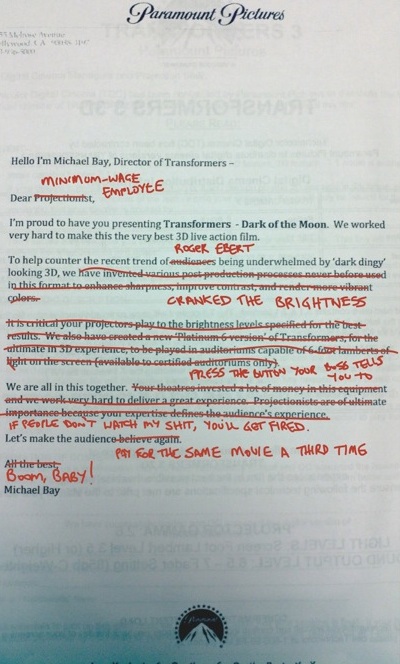 Paramount Pictures
TRANSFORMERS 3
TRANSFORMERS 3 3D
Hello I'm Michael Bay, Director of Transformers –
MINIMUM-WAGE
EMPLOYEE
Dear Projectionist,
I'm proud to have you presenting Transformers - Dark of the Moon. We worked
very hard to make this the very best 3D live action film.
ROGER EBERT
To help counter the recent trend of audiences being underwhelmed by 'dark dingy'
looking 3D, we have invented various post production processes never before used
in this format to enhance sharpness, improve contrast, and render more vibrant
colors.
CRANKED THE BRIGHTNESS
It is critical your projectors play to the brightness levels specified for the best
results. We also have created a new 'Platinum 6 version' of Transformers, for the
ultimate in 3D experience, to be played in auditoriums capable of 6-foot lamberts of
light on the screen (available to certified auditoriums only).
PRESS THE BUTTON YOUR BOSS TELLS
YOU TO
We are all in this together. Your theatres invested a lot of money in this equipment
and we work very hard to deliver a great experience. Projectionists are of ultimate
importance because your expertise defines the audience's experience.
IF PEOPLE DON'T WATCH MY SHIT, YOU'LL GET FIRED.
Let's make the audience believe again.
PAY FOR THE SAME MOVIE A THIRD TIME
All the best,
BOOM, BABY!
Michael Bay
PROJECTOR GAMMA 2.6
Paramount